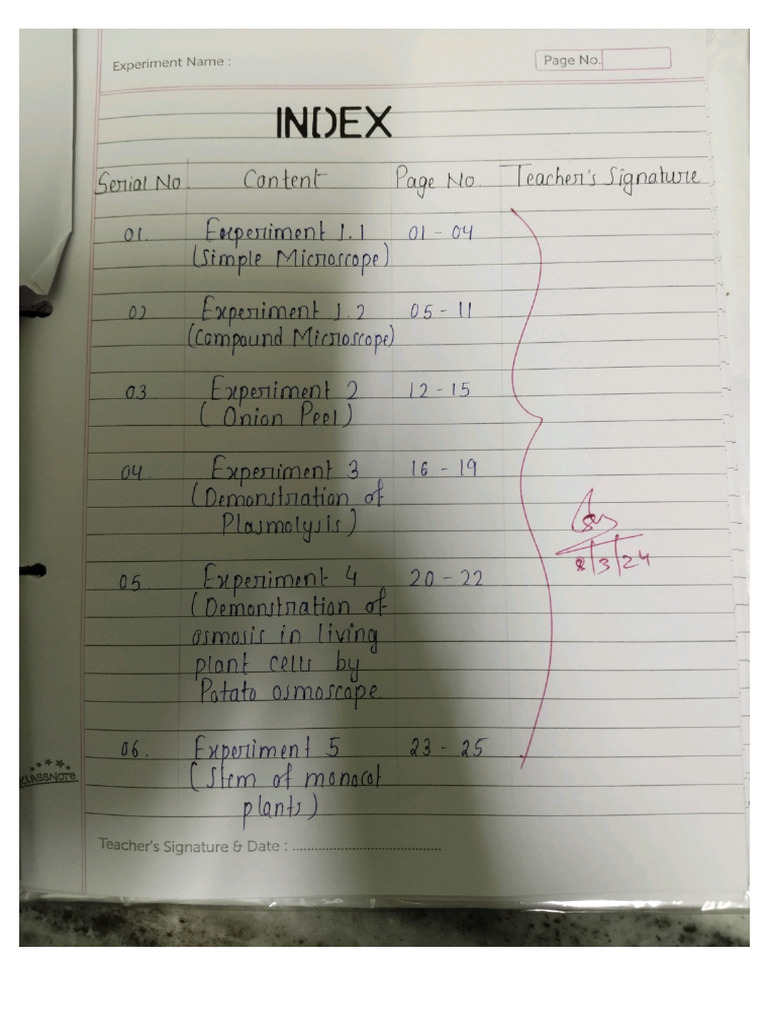 Experiment Name :
Page No.
INDEX
Serial No. Content Page No. Teacher's Signature
01. Experiment 1.1 01 - 04
(Simple Microscope)
02 Experiment 1.2 05 - 11
(Compound Microscope)
03. Experiment 2 12 - 15
( Onion Peel)
04. Experiment 3 16 - 19
(Demonstration of
Plasmolysis)
8/3/24
05 Experiment 4 20 - 22
(Demonstration of
osmosis in living
plant cells by
Potato osmoscope.
06. Experiment 5 23 - 25
(Stem of monocot
plants)
KLASSNOTE
Teacher's Signature & Date : ......................................